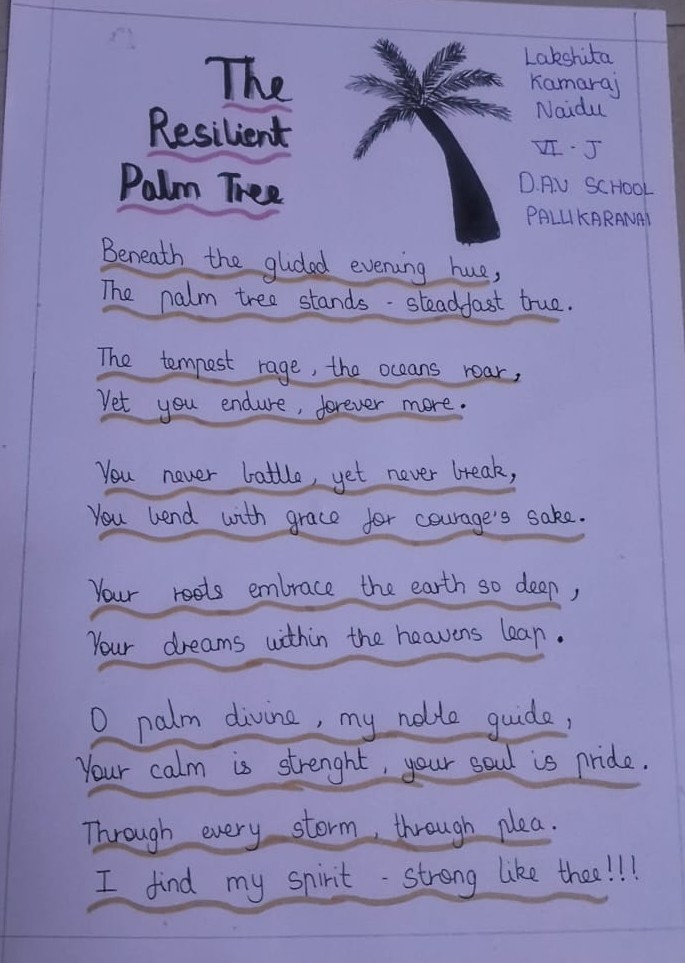 The
Resilient
Palm Tree
Lakshita
Kamaraj
Naidu
VI - J
D.AV SCHOOL
PALLIKARANAI
Beneath the glided evening hue,
The palm tree stands - steadfast true.
The tempest rage, the oceans roar,
Yet you endure, forever more.
You never battle, yet never break,
You bend with grace for courage's sake.
Your roots embrace the earth so deep,
Your dreams within the heavens leap.
O palm divine, my noble guide,
Your calm is strenght, your soul is pride.
Through every storm, through plea.
I find my spirit - strong like thee!!!